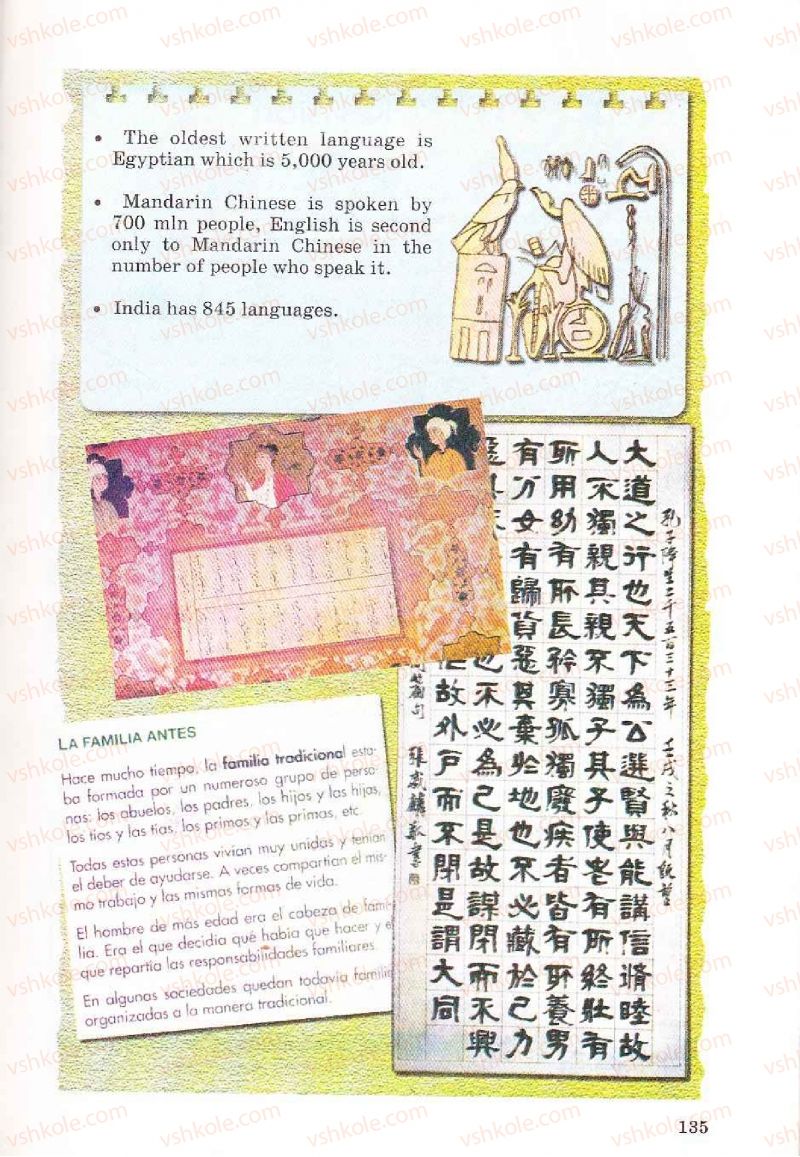 • The oldest written language is
Egyptian which is 5,000 years old.
• Mandarin Chinese is spoken by
700 mln people, English is second
only to Mandarin Chinese in the
number of people who speak it.
• India has 845 languages.
孔子降生二千五百三十三年 壬戌之秋八月既望
大道之行也天下為公選賢與能講信脩睦故
人不獨親其親不獨子其子使老有所終壯有
所用幼有所長矜寡孤獨廢疾者皆有所養男
有分女有歸貨惡其棄於地也不必藏於己力
惡其
也不必為己是故謀閉而不興
故外戶而不閉是謂大同
LA FAMILIA ANTES
Hace mucho tiempo, la familia tradicional esta-
ba formada por un numeroso grupo de perso-
nas: los abuelos, los padres, los hijos y las hijas,
los tíos y las tías, los primos y las primas, etc.
Todas estas personas vivían muy unidas y tenían
el deber de ayudarse. A veces compartían el mis-
mo trabajo y las mismas formas de vida.
El hombre de más edad era el cabeza de fami-
lia. Era el que decidía qué había que hacer y e
que repartía las responsabilidades familiares.
En algunas sociedades quedan todavía famili
organizadas a la manera tradicional.
135
vshkole.com